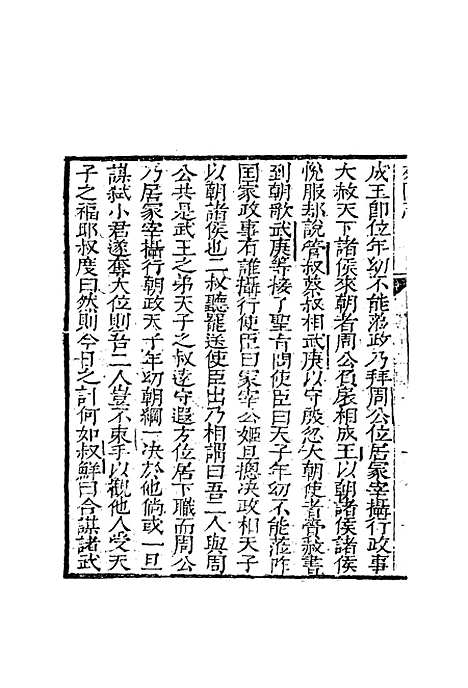 成王即位年幼不能蒞政乃拜周公位居冡宰攝行政事
大赦天下諸侯來朝者周公負扆相成王以朝諸侯諸侯
悅服却說管叔蔡叔相武庚以守殷忽大朝使者賫赦書
到朝歌武庚等接了聖旨問使臣曰天子年幼不能蒞阼
国家政事有誰攝行使臣曰冡宰公姬旦總决政相天子
以朝諸侯也二叔聽罷送使臣出乃相謂曰吾二人與周
公共是武王之弟天子之叔遠守遐方位居下職而周公
乃居冡宰攝行朝政天子年幼朝綱一决於他倘或一旦
謀弑小君遂奪大位則吾二人豈不束手以觀他人受天
子之福耶叔度曰然則今日之計何如叔鮮曰合謀諸武